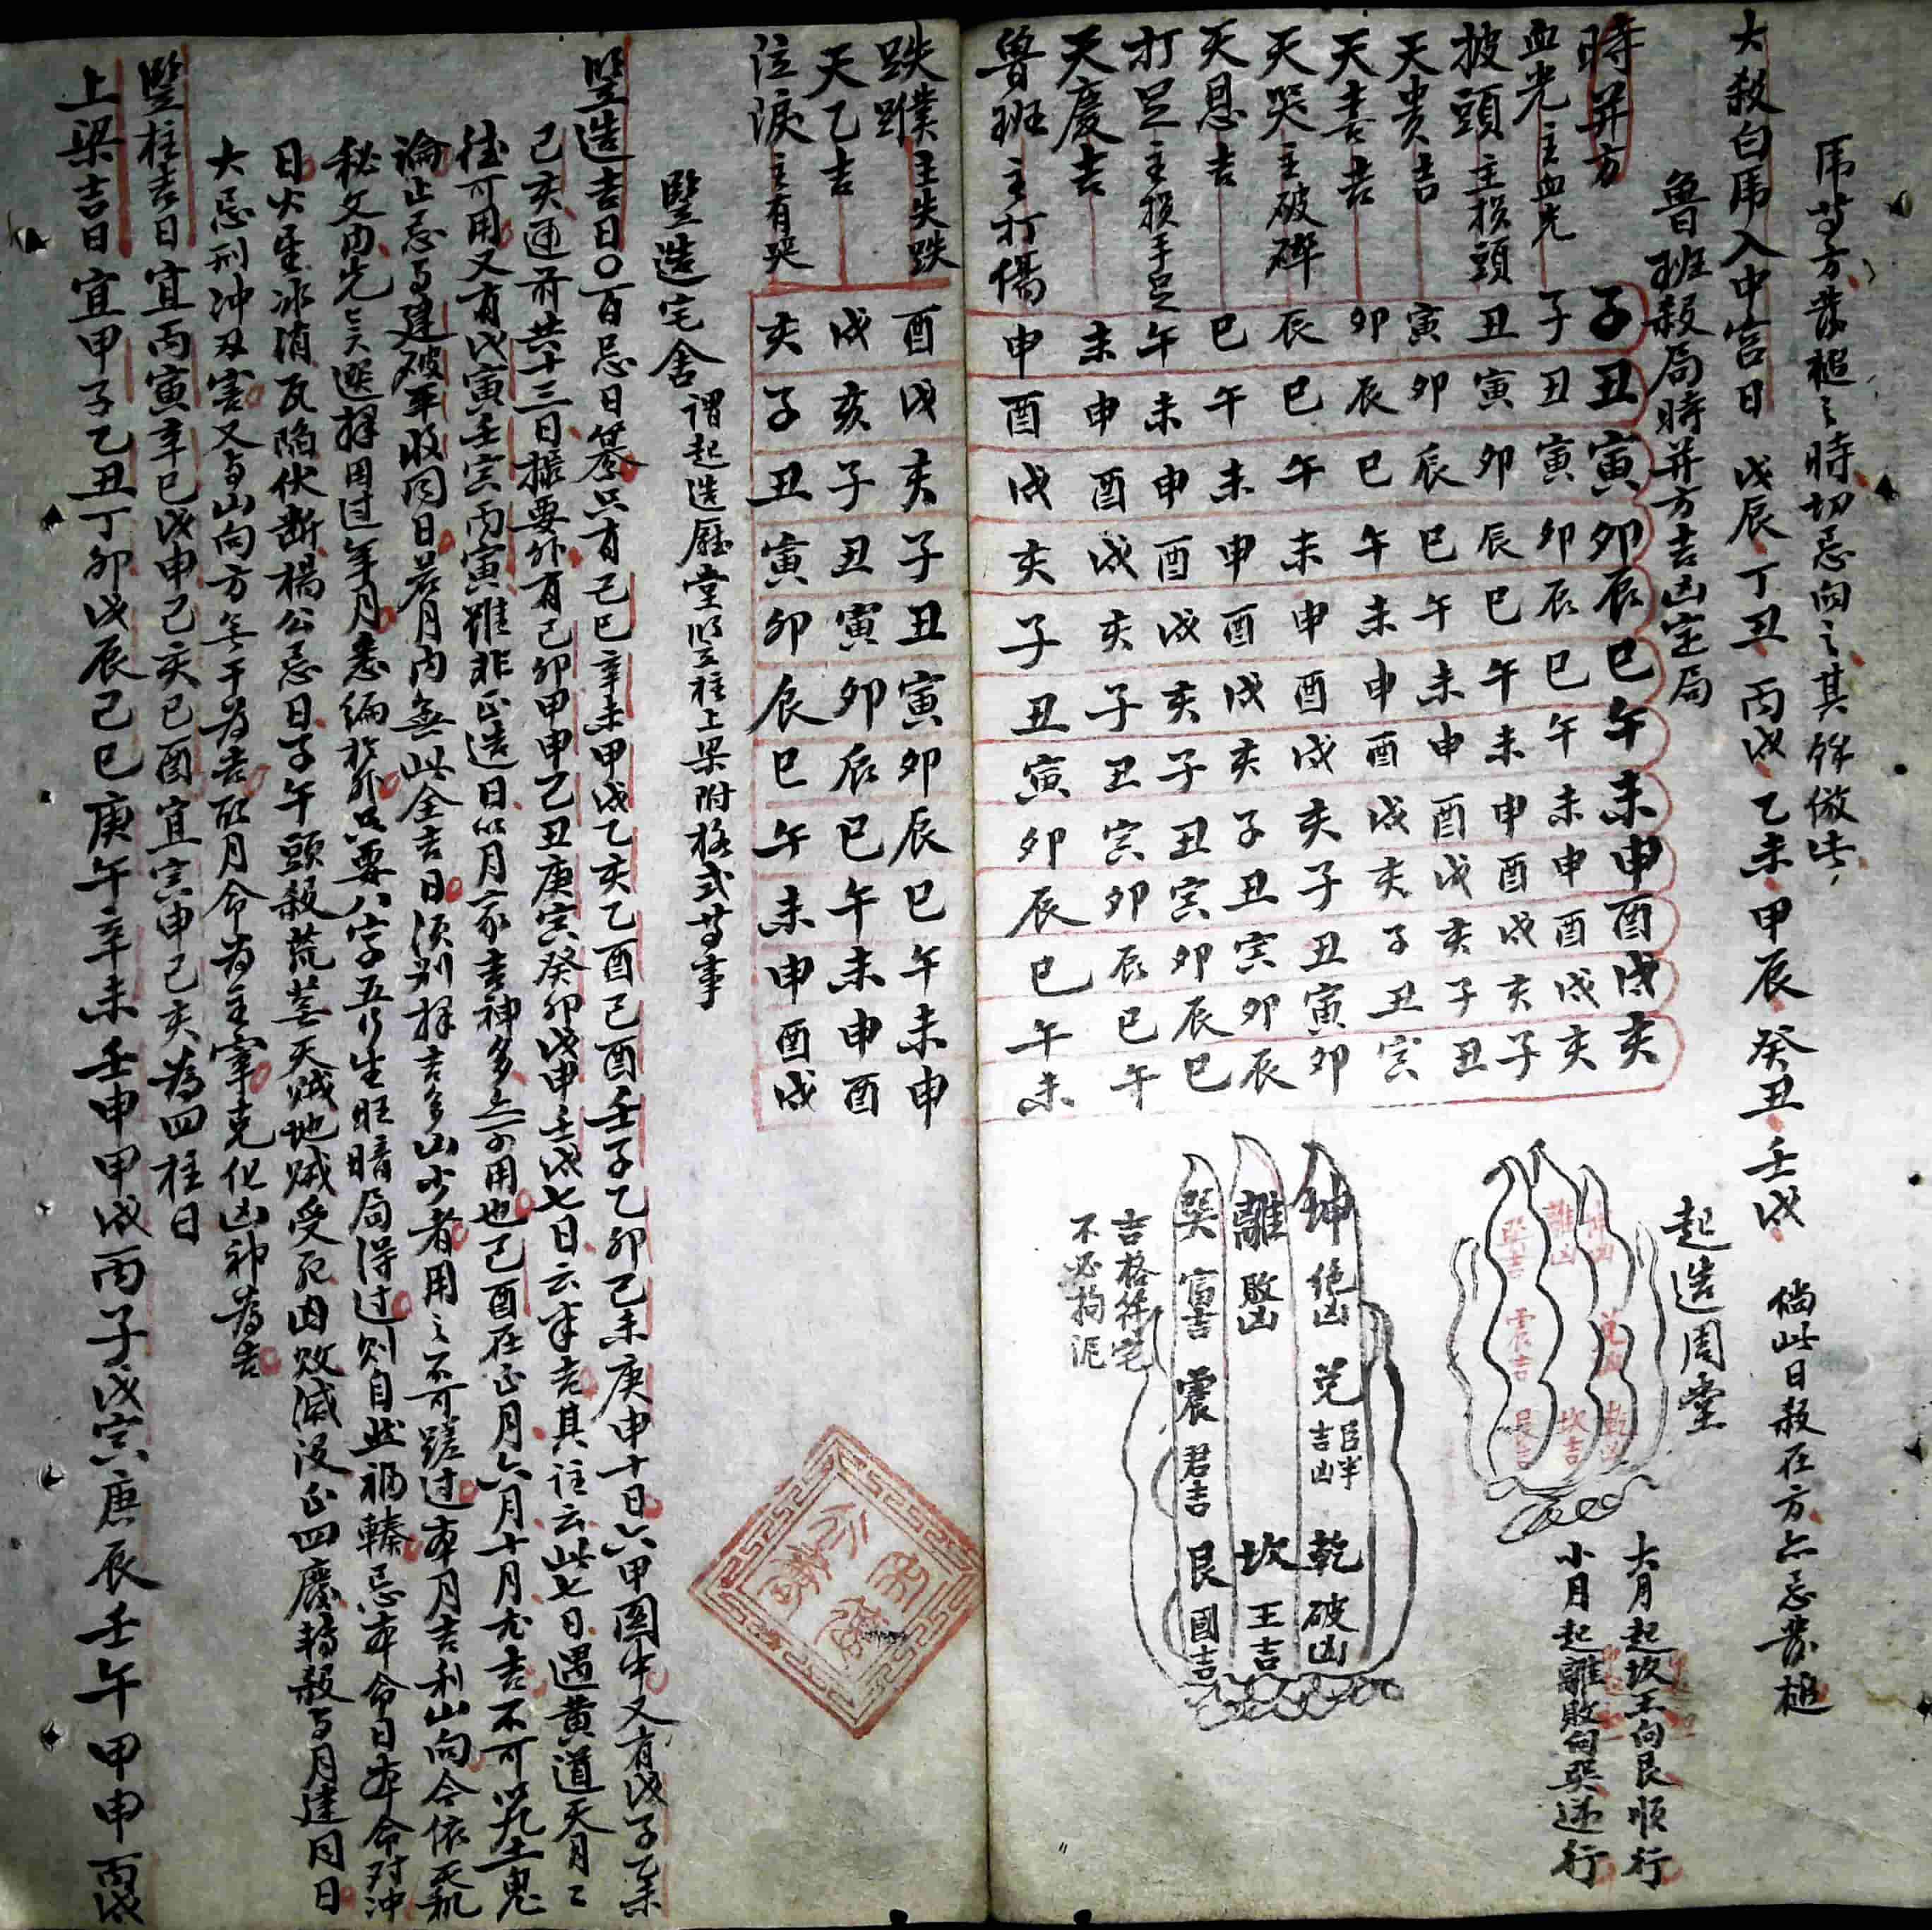 乕等方發槌之時切忌向之其餘倣此
大殺白乕入中宮日 戊辰 丁丑 丙戌 乙未 甲辰 癸丑 壬戌 倘此日殺在方亦忌發槌
魯班殺局時并方吉凶定局
時并方 子丑寅卯辰巳午未申酉戌亥
血光主血光 子丑寅卯辰巳午未申酉戌亥
披頭主損頭 丑寅卯辰巳午未申酉戌亥子
天貴吉 寅卯辰巳午未申酉戌亥子丑
天喜吉 卯辰巳午未申酉戌亥子丑寅
天哭主破碎 辰巳午未申酉戌亥子丑寅卯
天恩吉 巳午未申酉戌亥子丑寅卯辰
打足主損手足 午未申酉戌亥子丑寅卯辰巳
天慶吉 未申酉戌亥子丑寅卯辰巳午
魯班主打傷 申酉戌亥子丑寅卯辰巳午未
起造周堂
大月起坎王向艮順行
小月起離敗向巽逆行
離凶
巽吉
震吉
坎吉
艮吉
坤 絕凶 兌 臣半吉凶 乾 破凶
離 敗凶 坎 王吉
巽 富吉 震 君吉 艮 國吉
吉格符宅
不必拘泥
跌蹼主失跌 酉戌亥子丑寅卯辰巳午未申
天乙吉 戌亥子丑寅卯辰巳午未申酉
泣淚主有哭 亥子丑寅卯辰巳午未申酉戌
豎造宅舍 謂起造廳堂豎柱上梁附格式等事
豎造吉日○百忌日纂只有己巳辛未甲戌乙亥乙酉己酉壬子乙卯己未庚申十日六甲圖中又有戊子乙未
己亥通前共十三日撮要外有己卯甲申乙丑庚寅癸卯戊申壬戌七日云笨吉其注云此七日遇黄道天月二
德可用又有戊寅壬寅丙寅雖非正造日以月家吉神多亦可用也己酉在正月六月十月尤吉不可以九土鬼
論止忌与建破平收同日若月内無此全吉日須別擇吉多凶少者用之不可蹉过本月吉利山向今依天机
秘文由光云天遂擇用过年月悉編於外只要八字五行生旺暗局得过則自然福臻忌本命日本命对冲
日火星冰消瓦陷伏断楊公忌日子午頭殺荒蕪天賊地賊受死凶敗滅没正四廢轉殺与月建同日
大忌刑冲刃害又与山向方無干为吉取月令为主宰克化凶神为吉
豎柱吉日 宜丙寅辛巳戊申己亥己酉宜寅申己亥為四柱日
上梁吉日 宜甲子乙丑丁卯戊辰己巳庚午辛未壬申甲戌丙子戊寅庚辰壬午甲申丙戌